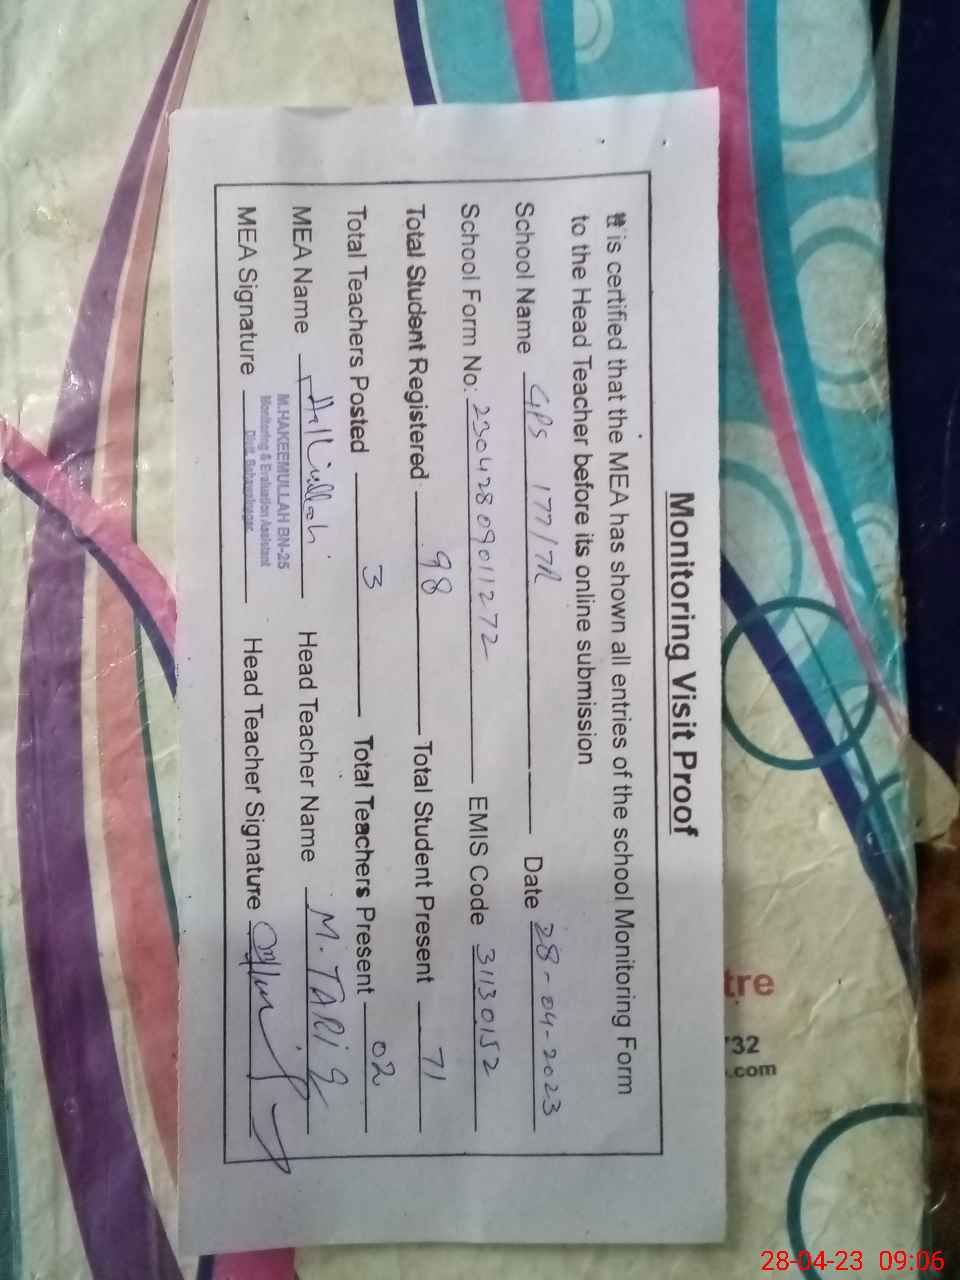 Monitoring Visit Proof
It is certified that the MEA has shown all entries of the school Monitoring Form
to the Head Teacher before its online submission
School Name GPS 177/7R Date 28-04-2023
School Form No: 23042809011272 EMIS Code 31130152
Total Student Registered 98 Total Student Present 71
Total Teachers Posted 3 Total Teachers Present 02
MEA Name Head Teacher Name M. TARIQ
M.HAKEEMULLAH BN-25
Monitoring & Evaluation Assistant
Distt. Bahawalnagar
MEA Signature Head Teacher Signature
tre
732
.com
28-04-23 09:06